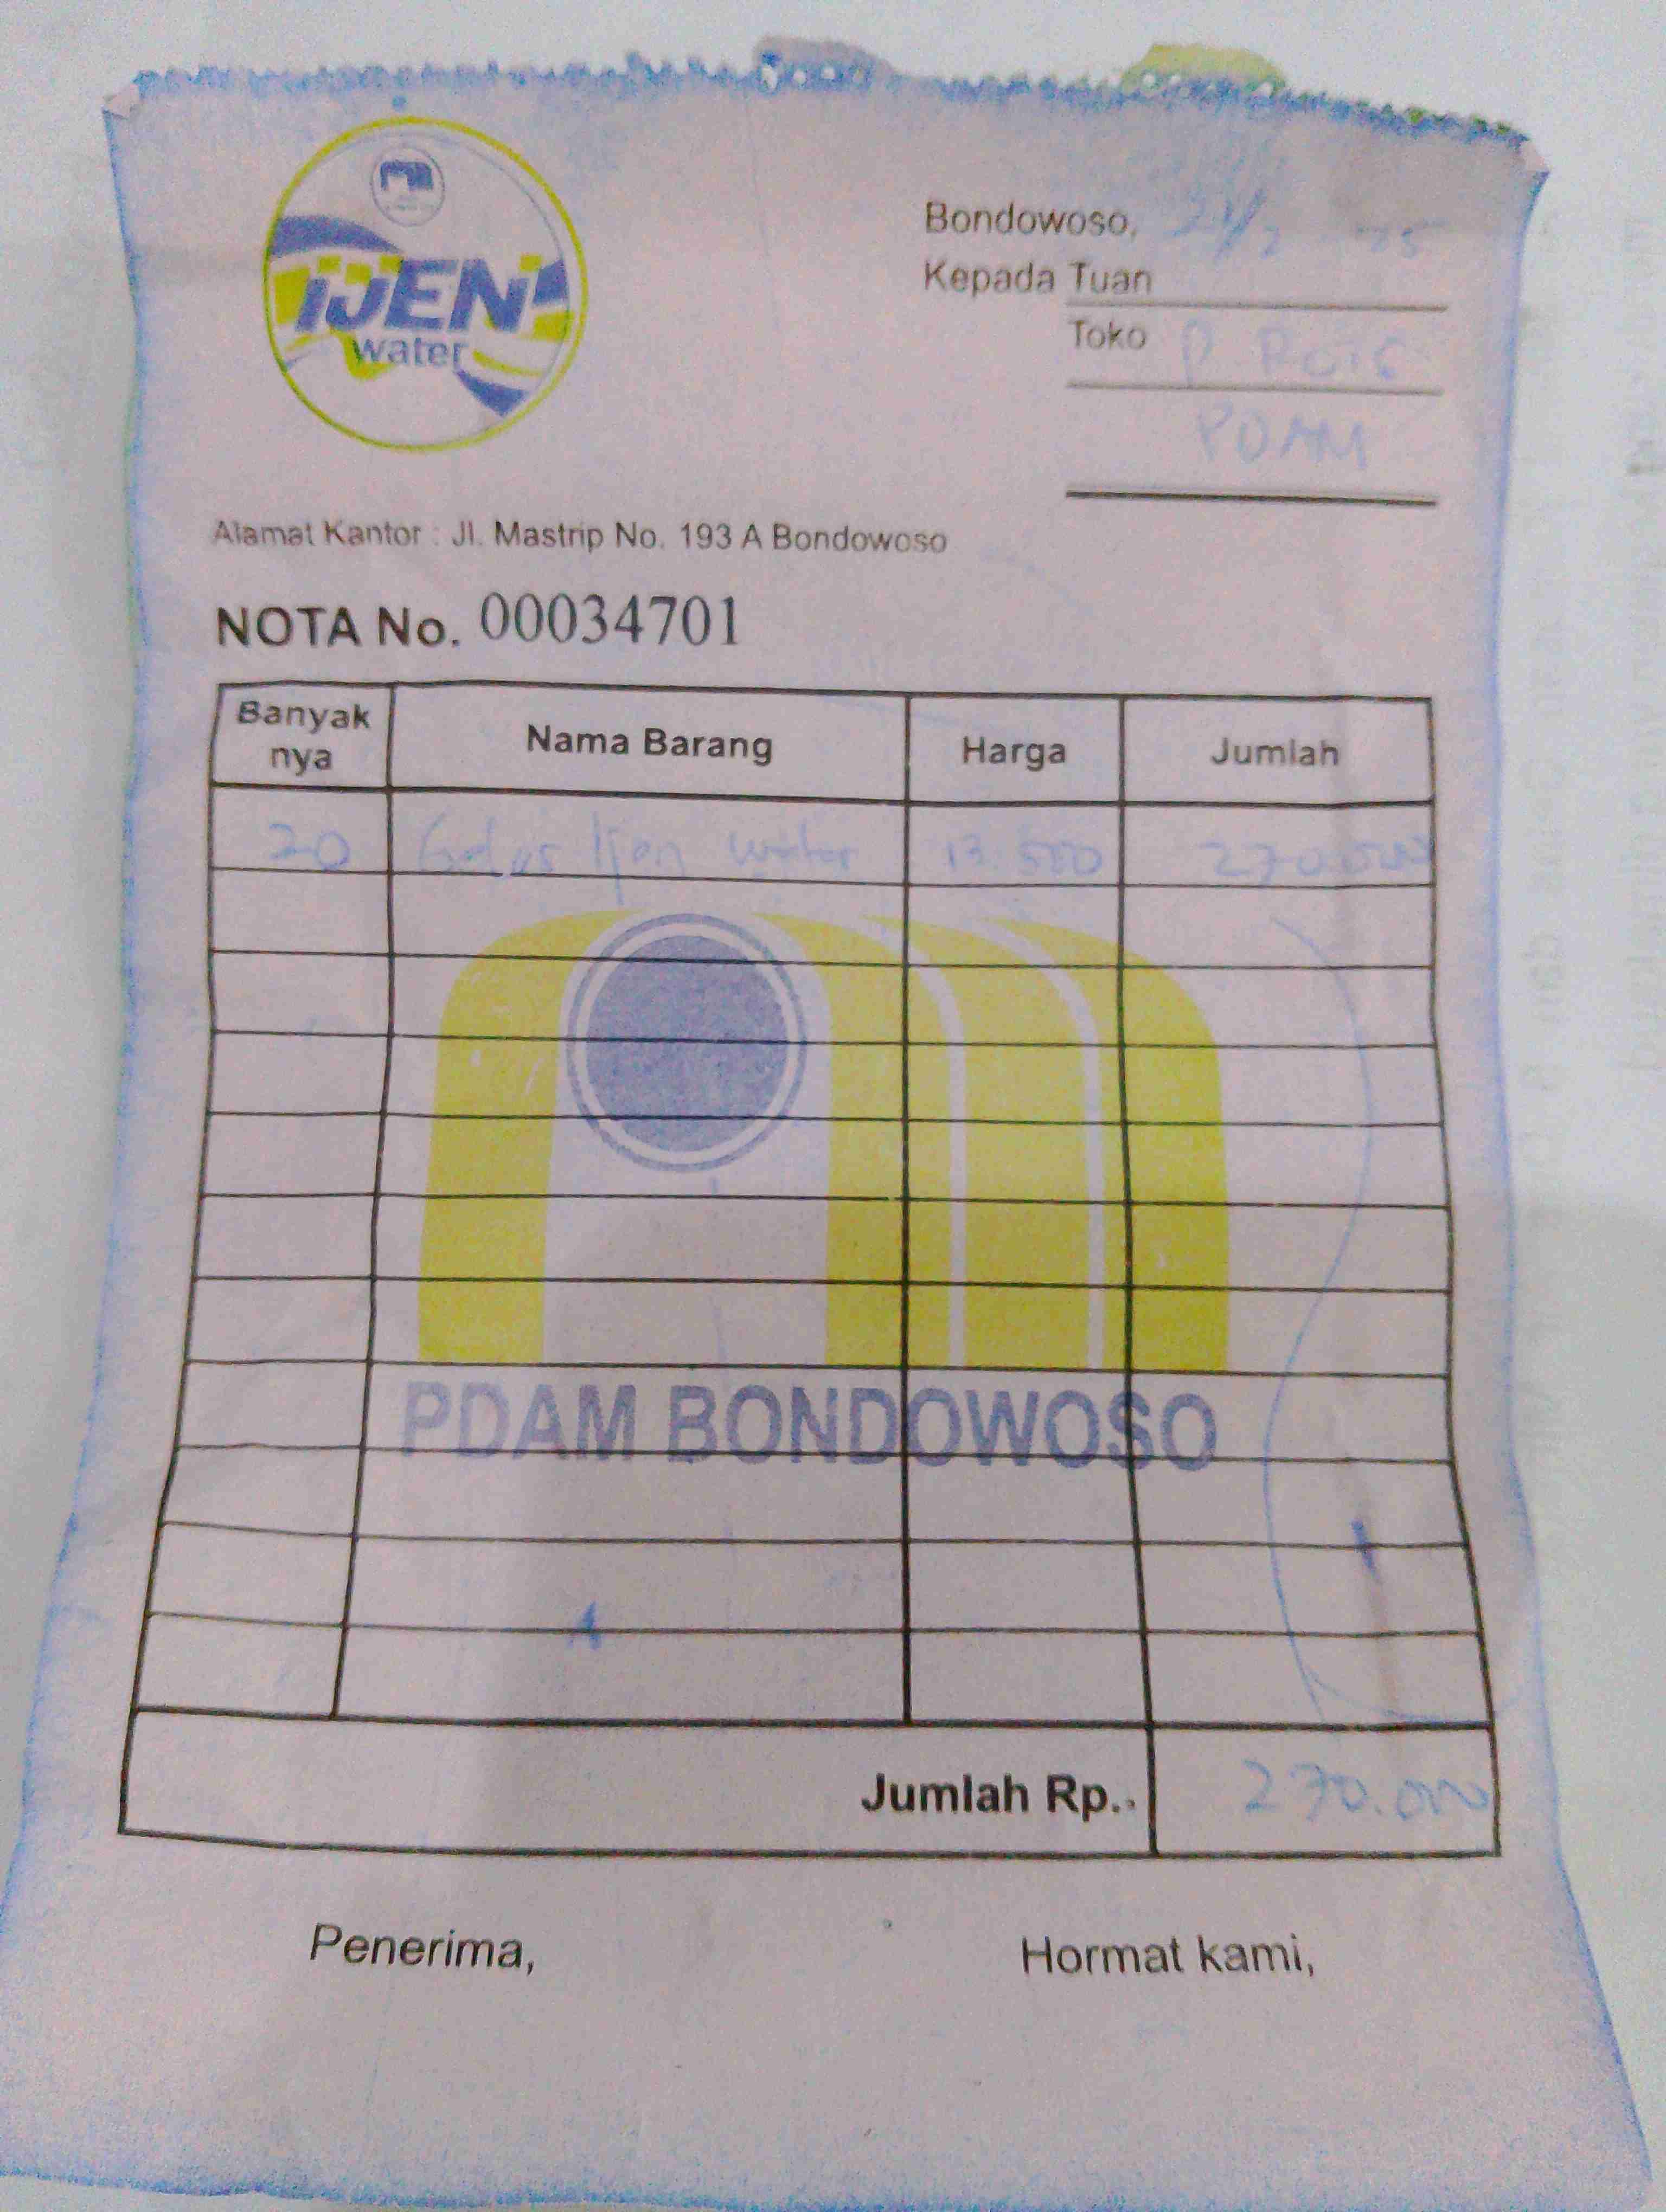 iJEN
water
Bondowoso,
Kepada Tuan
Toko P. ROIS
PDAM
Alamat Kantor : Jl. Mastrip No. 193 A Bondowoso
NOTA No. 00034701
Banyak nya Nama Barang Harga Jumlah
20 Galus Ijen water 13.500 270.000
PDAM BONDOWOSO
Jumlah Rp.. 270.000
Penerima, Hormat kami,